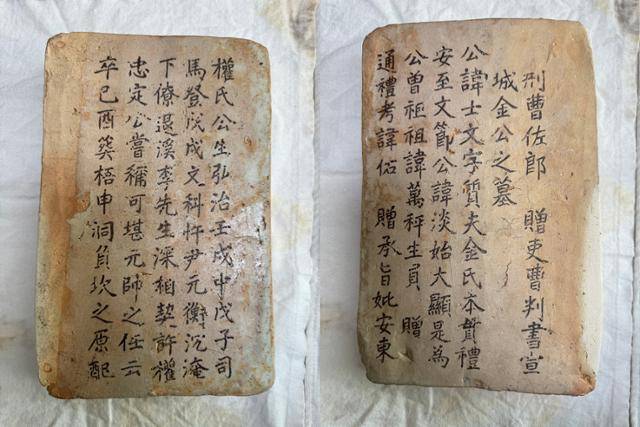 刑曹佐郎 贈吏曹判書宣
城金公之墓
公諱士文字質夫金氏本貫禮
安至文節公諱淡始大顯是為
公曾祖祖諱萬秤生員 贈
通禮考諱佑 贈承旨妣安東
權氏公生弘治壬戌中戊子司
馬登戊戌文科忤尹元衡沉淹
下僚退溪李先生深相契許權
忠定公嘗稱可堪元帥之任云
卒己酉葬梧申洞負坎之原配